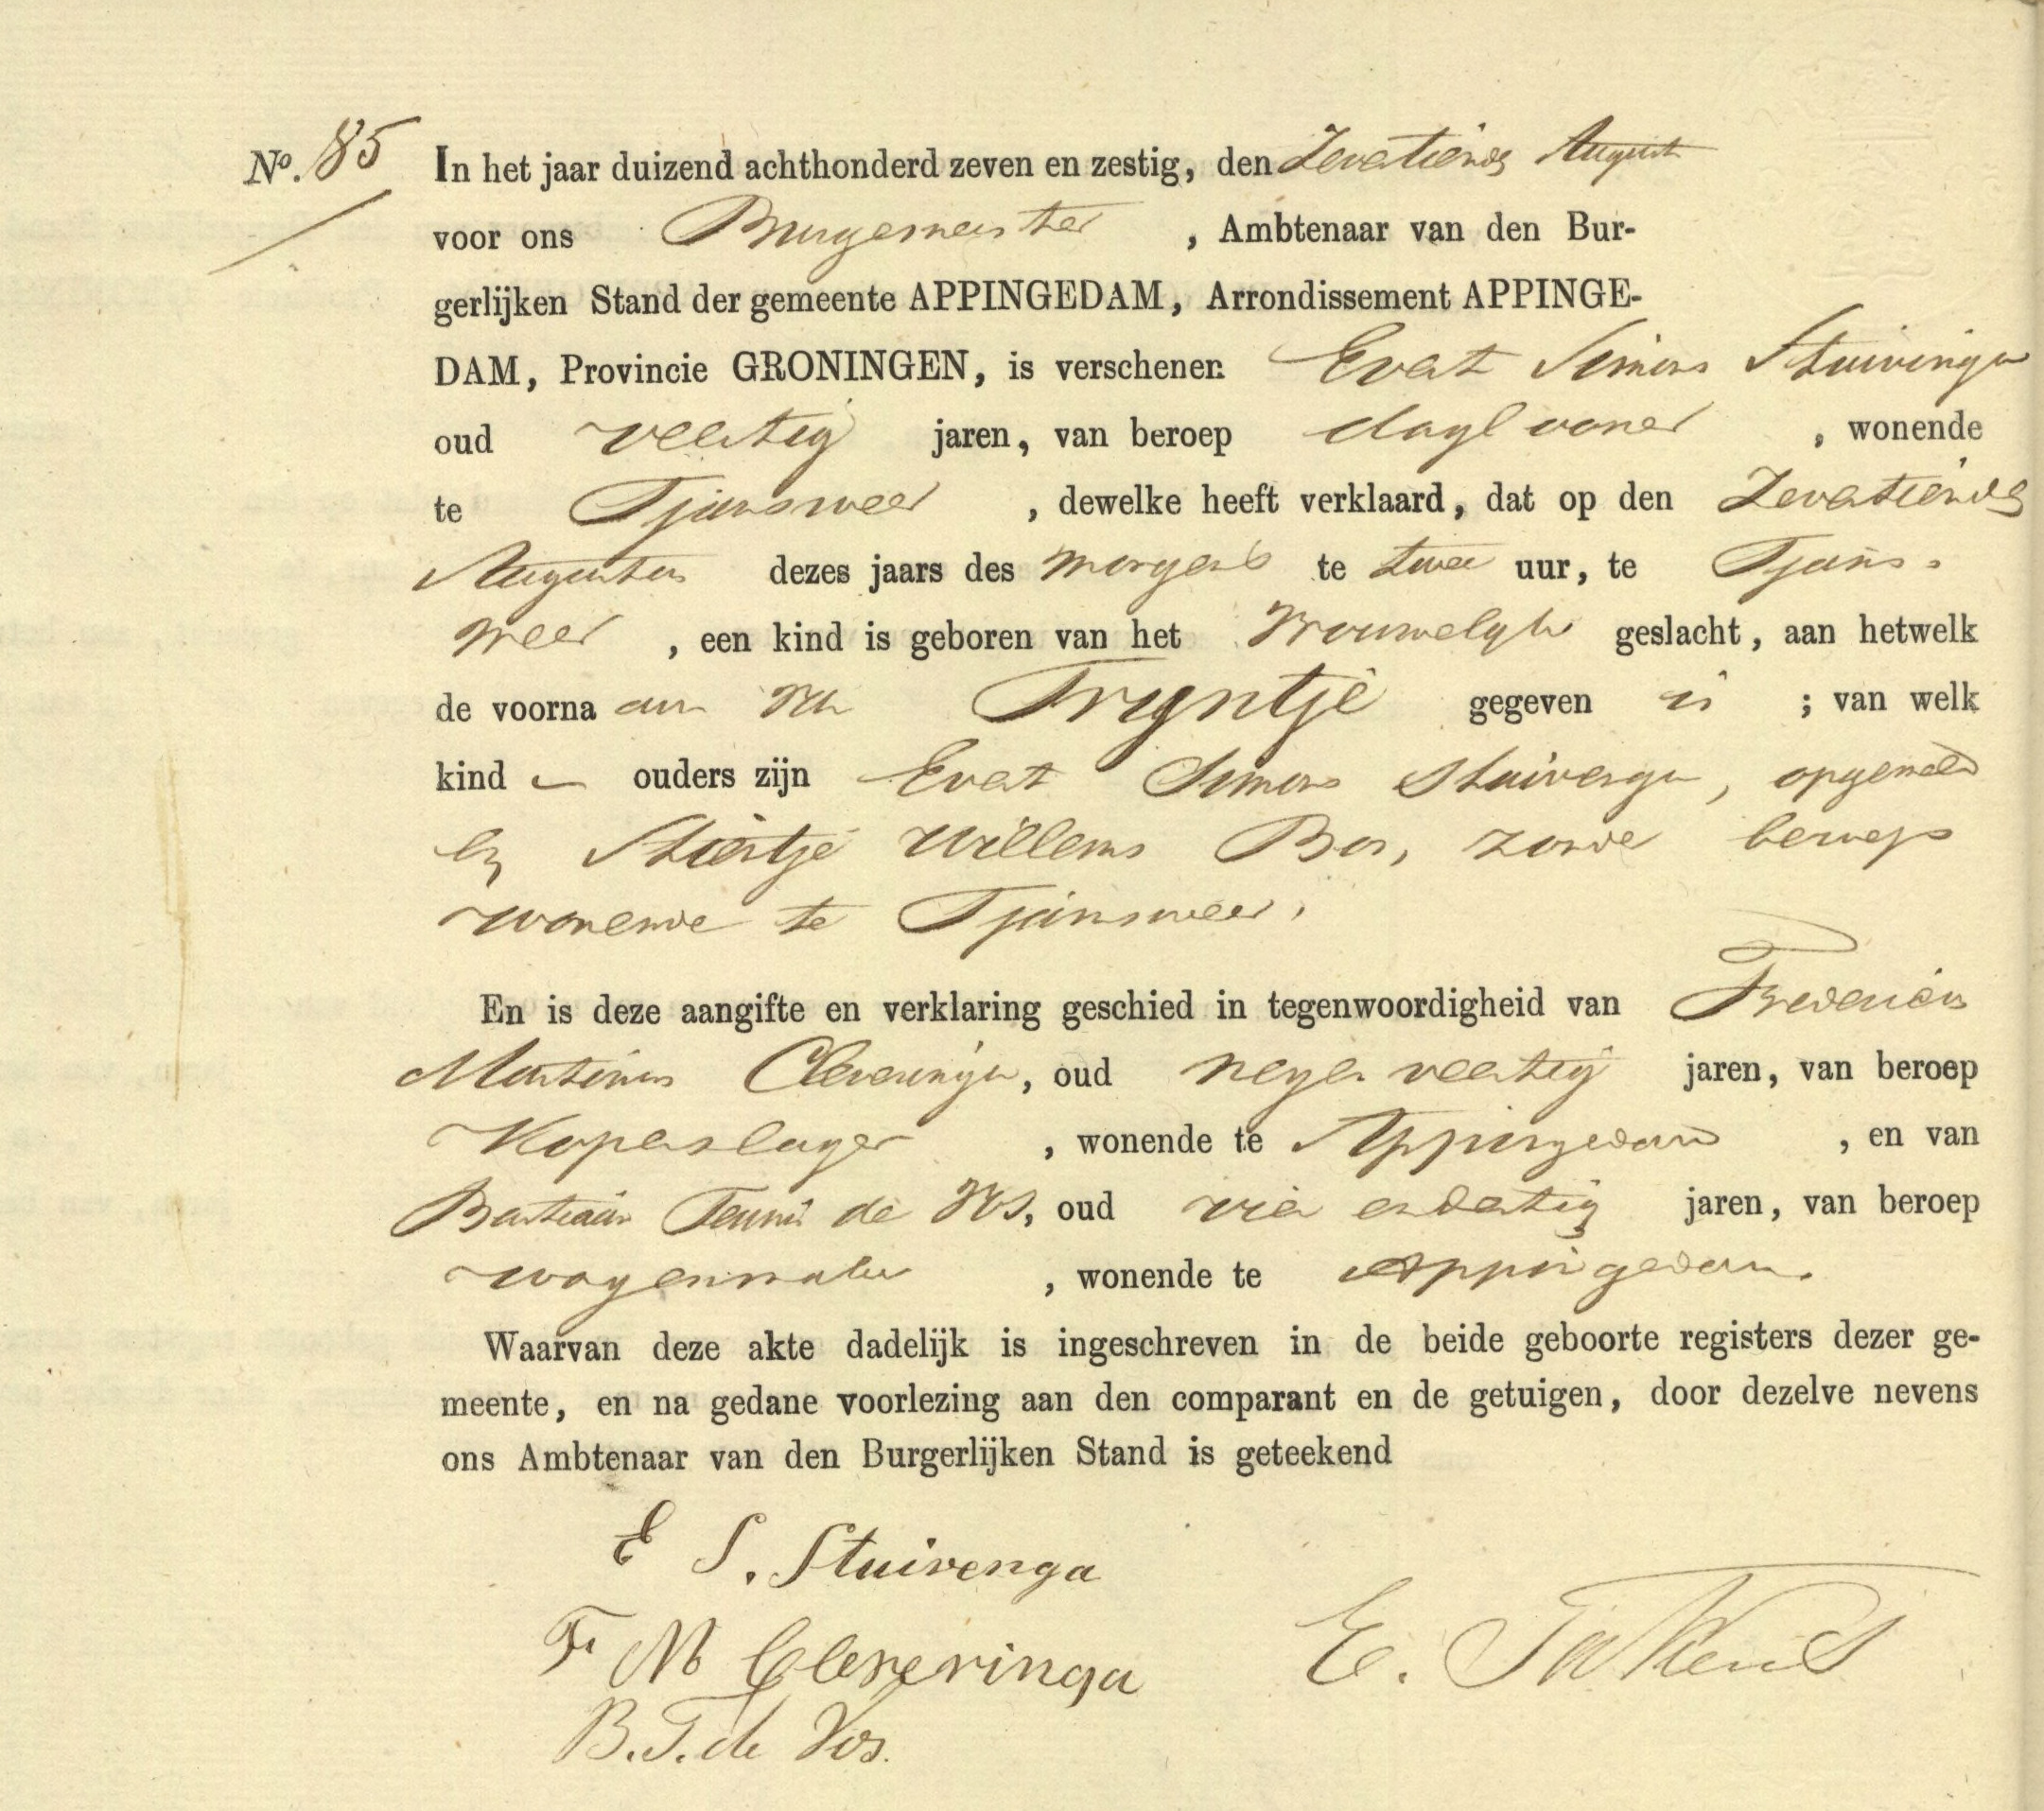 No. 85 In het jaar duizend achthonderd zeven en zestig, den Zeventiende August
voor ons Burgemeester, Ambtenaar van den Bur-
gerlijken Stand der gemeente APPINGEDAM, Arrondissement APPINGE-
DAM, Provincie GRONINGEN, is verschenen Evert Simons Stuivinga
oud veertig jaren, van beroep daglooner, wonende
te Tjamsweer, dewelke heeft verklaard, dat op den Zeventiende
Augustus dezes jaars des morgens te twee uur, te Tjams-
weer, een kind is geboren van het Vrouwelijk geslacht, aan hetwelk
de voorna am van Tryntje gegeven is ; van welk
kind ouders zijn Evert Simons Stuivenga, opgemeld
en Stientje Willems Bos, zonder beroep
wonende te Tjamsweer.
En is deze aangifte en verklaring geschied in tegenwoordigheid van Fredericus
Martinus Cleveringa, oud negen veertig jaren, van beroep
Koperslager, wonende te Appingedam, en van
Bastiaan Teunis de Vos, oud vier endertig jaren, van beroep
wagenmaker, wonende te Appingedam.
Waarvan deze akte dadelijk is ingeschreven in de beide geboorte registers dezer ge-
meente, en na gedane voorlezing aan den comparant en de getuigen, door dezelve nevens
ons Ambtenaar van den Burgerlijken Stand is geteekend
E S. Stuivenga
F. M Cleveringa
E. Takens
B. T. de Vos.